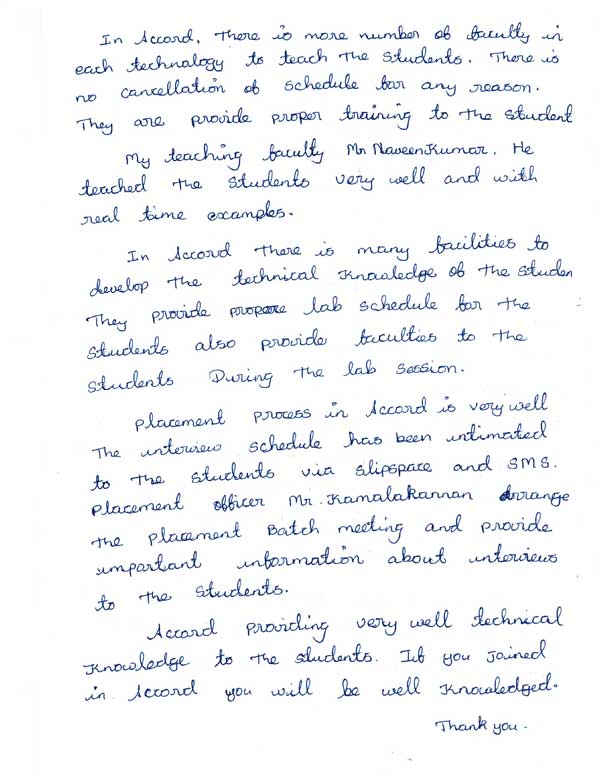 In Accord, there is more number of faculty in
each technology to teach the students. There is
no cancellation of schedule for any reason.
They are provide proper training to the student
My teaching faculty Mr NaveenKumar. He
teached the students very well and with
real time examples.
In Accord there is many facilities to
develop the technical knowledge of the studen
They provide propere lab schedule for the
students also provide faculties to the
students During the lab session.
Placement process in Accord is very well
The interview schedule has been intimated
to the students via slipspace and SMS.
Placement officer Mr. Kamalakannan Arrange
the placement Batch meeting and provide
important information about interviews
to the students.
Accord providing very well technical
knowledge to the students. If you joined
in Accord you will be well knowledged.
Thank you.